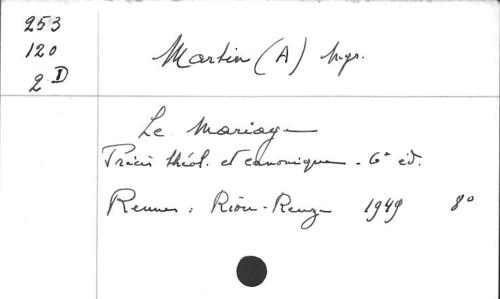 253
120
2 D
Martin (A) Mgr.
Le Mariage
Précis théol. et canonique. 6e éd.
Rennes, Riou-Reuzé 1949 8°